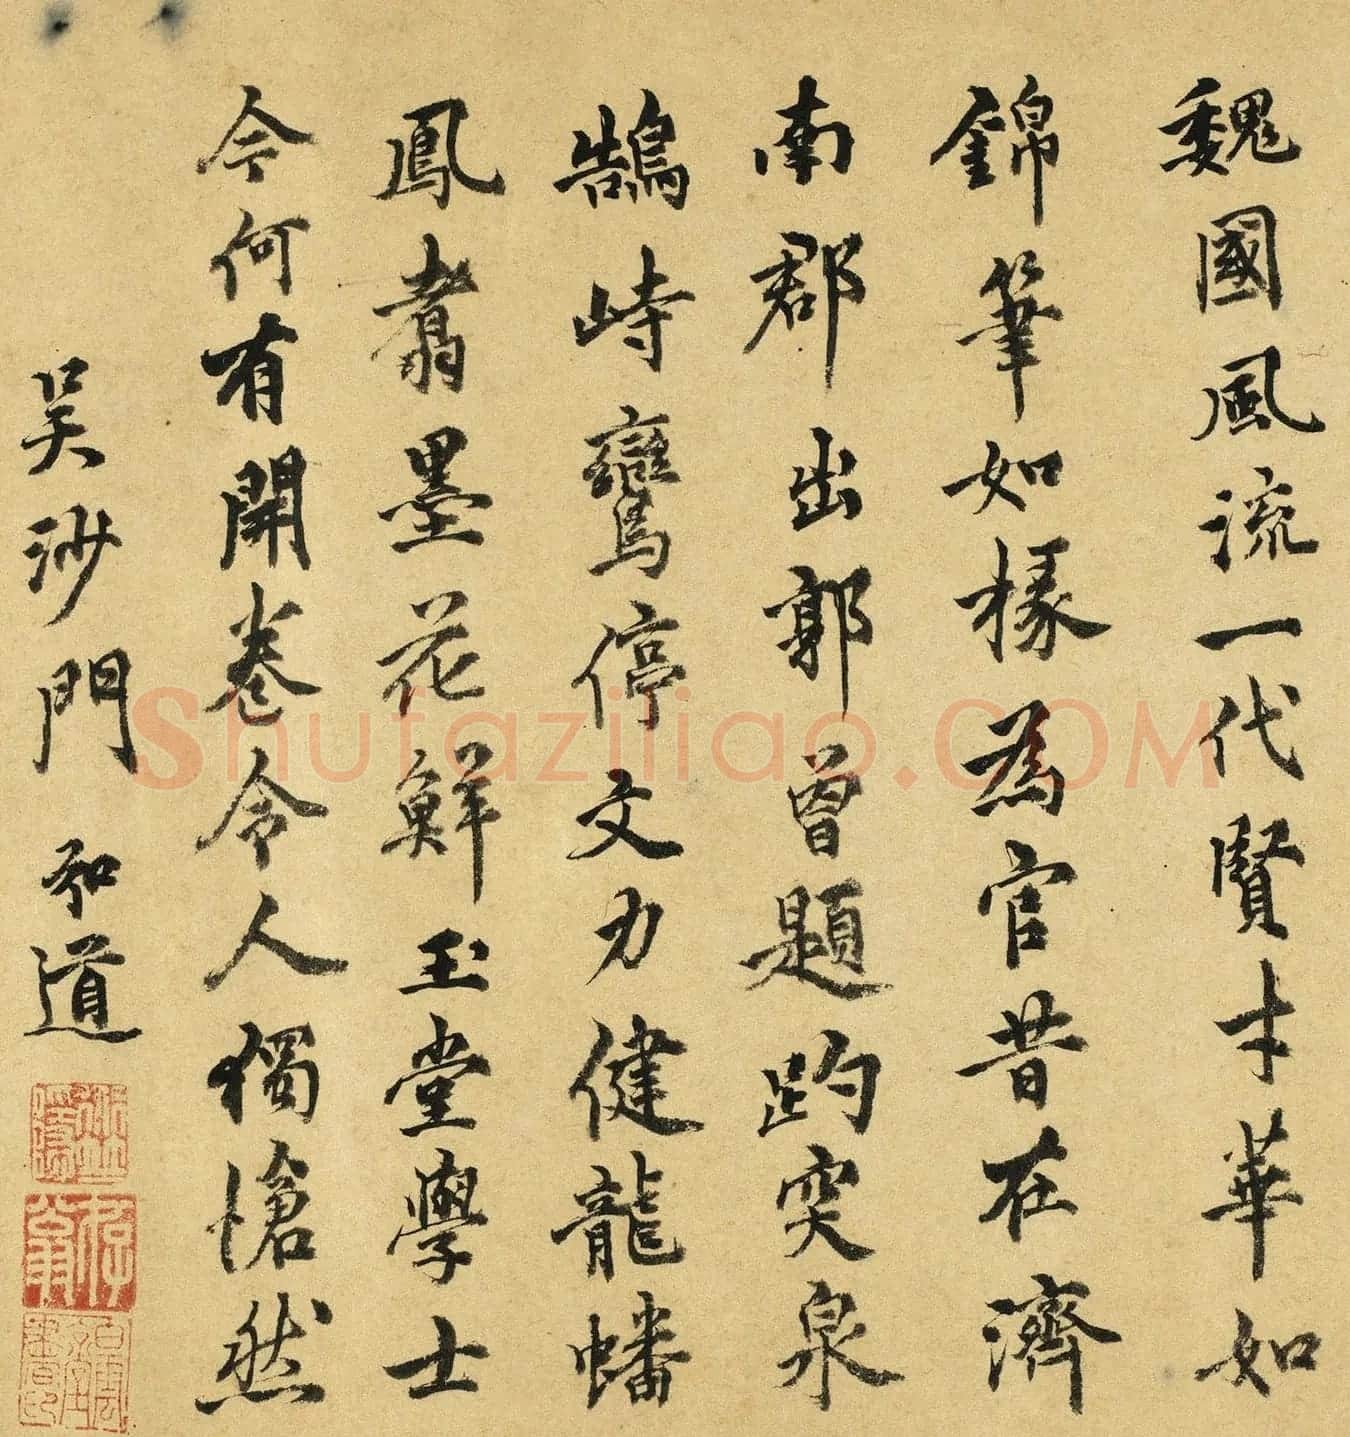 魏國風流一代賢才華如
錦筆如椽為官昔在濟
南郡出郭曾題趵突泉
鵠峙鸞停文力健龍蟠
鳳翥墨花鮮玉堂學士
今何有開卷令人獨愴然
吳沙門 弘道
Shufaziliao.COM